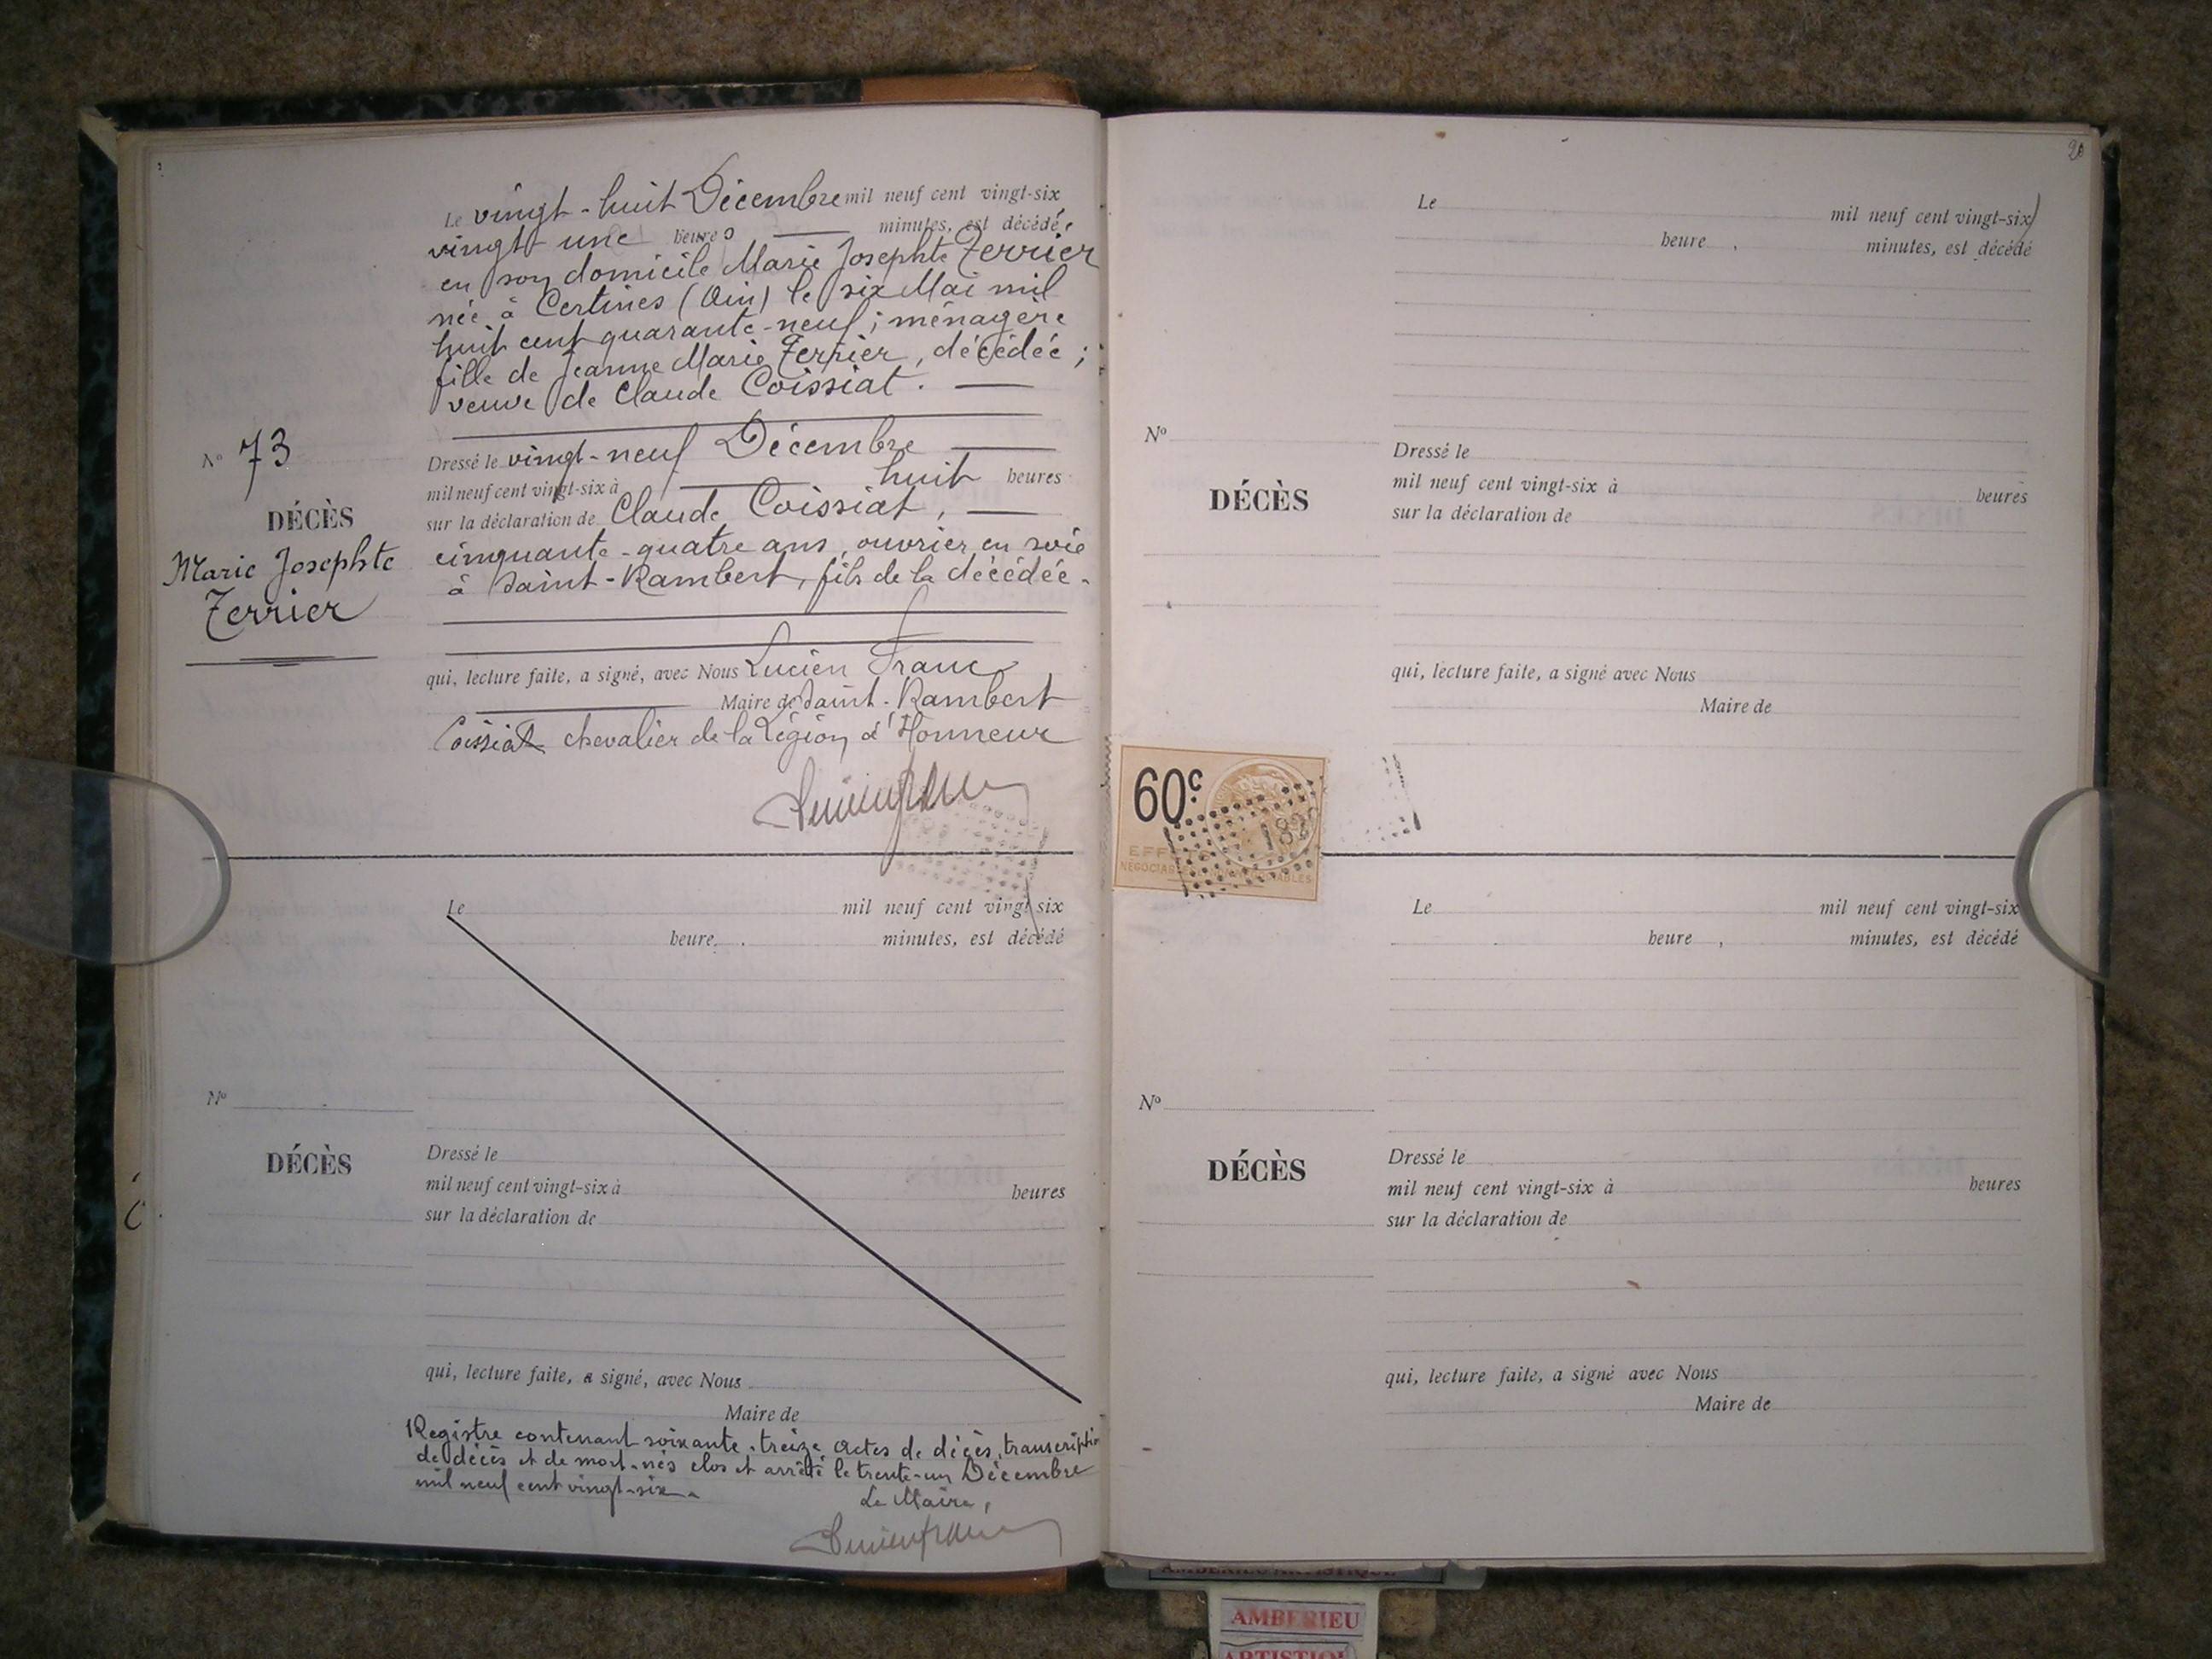 Le vingt-huit Décembre mil neuf cent vingt-six,
vingt une heures — minutes, est décédée
en son domicile Marie Josephte Terrier
née à Certines (Ain) le six Mai mil
huit cent quarante-neuf ; ménagère
fille de Jeanne Marie Terrier, décédée ;
veuve de Claude Coissiat. —
N° 73
DÉCÈS
Marie Josephte
Terrier
Dressé le vingt-neuf Décembre —
mil neuf cent vingt-six à — huit heures
sur la déclaration de Claude Coissiat, —
cinquante-quatre ans, ouvrier en soie
à Saint-Rambert, fils de la décédée.
qui, lecture faite, a signé, avec Nous Lucien Franc
— Maire de Saint-Rambert
Coissiat chevalier de la Légion d'Honneur
Lucien Franc
Le mil neuf cent vingt six
heure , minutes, est décédé
N°
DÉCÈS
Dressé le
mil neuf cent vingt-six à heures
sur la déclaration de
qui, lecture faite, a signé, avec Nous
Maire de
Registre contenant soixante-treize actes de décès, transcription
de décès et de mort-nés clos et arrêté le trente-un Décembre
mil neuf cent vingt-six.
Le Maire,
Lucien Franc
20
Le mil neuf cent vingt-six
heure , minutes, est décédé
N°
DÉCÈS
Dressé le
mil neuf cent vingt-six à heures
sur la déclaration de
qui, lecture faite, a signé avec Nous
Maire de
60c
182
EFFETS
Le mil neuf cent vingt-six
heure , minutes, est décédé
N°
DÉCÈS
Dressé le
mil neuf cent vingt-six à heures
sur la déclaration de
qui, lecture faite, a signé avec Nous
Maire de
AMBERIEU ARTISTIQUE
AMBERIEU
ARTISTIQU